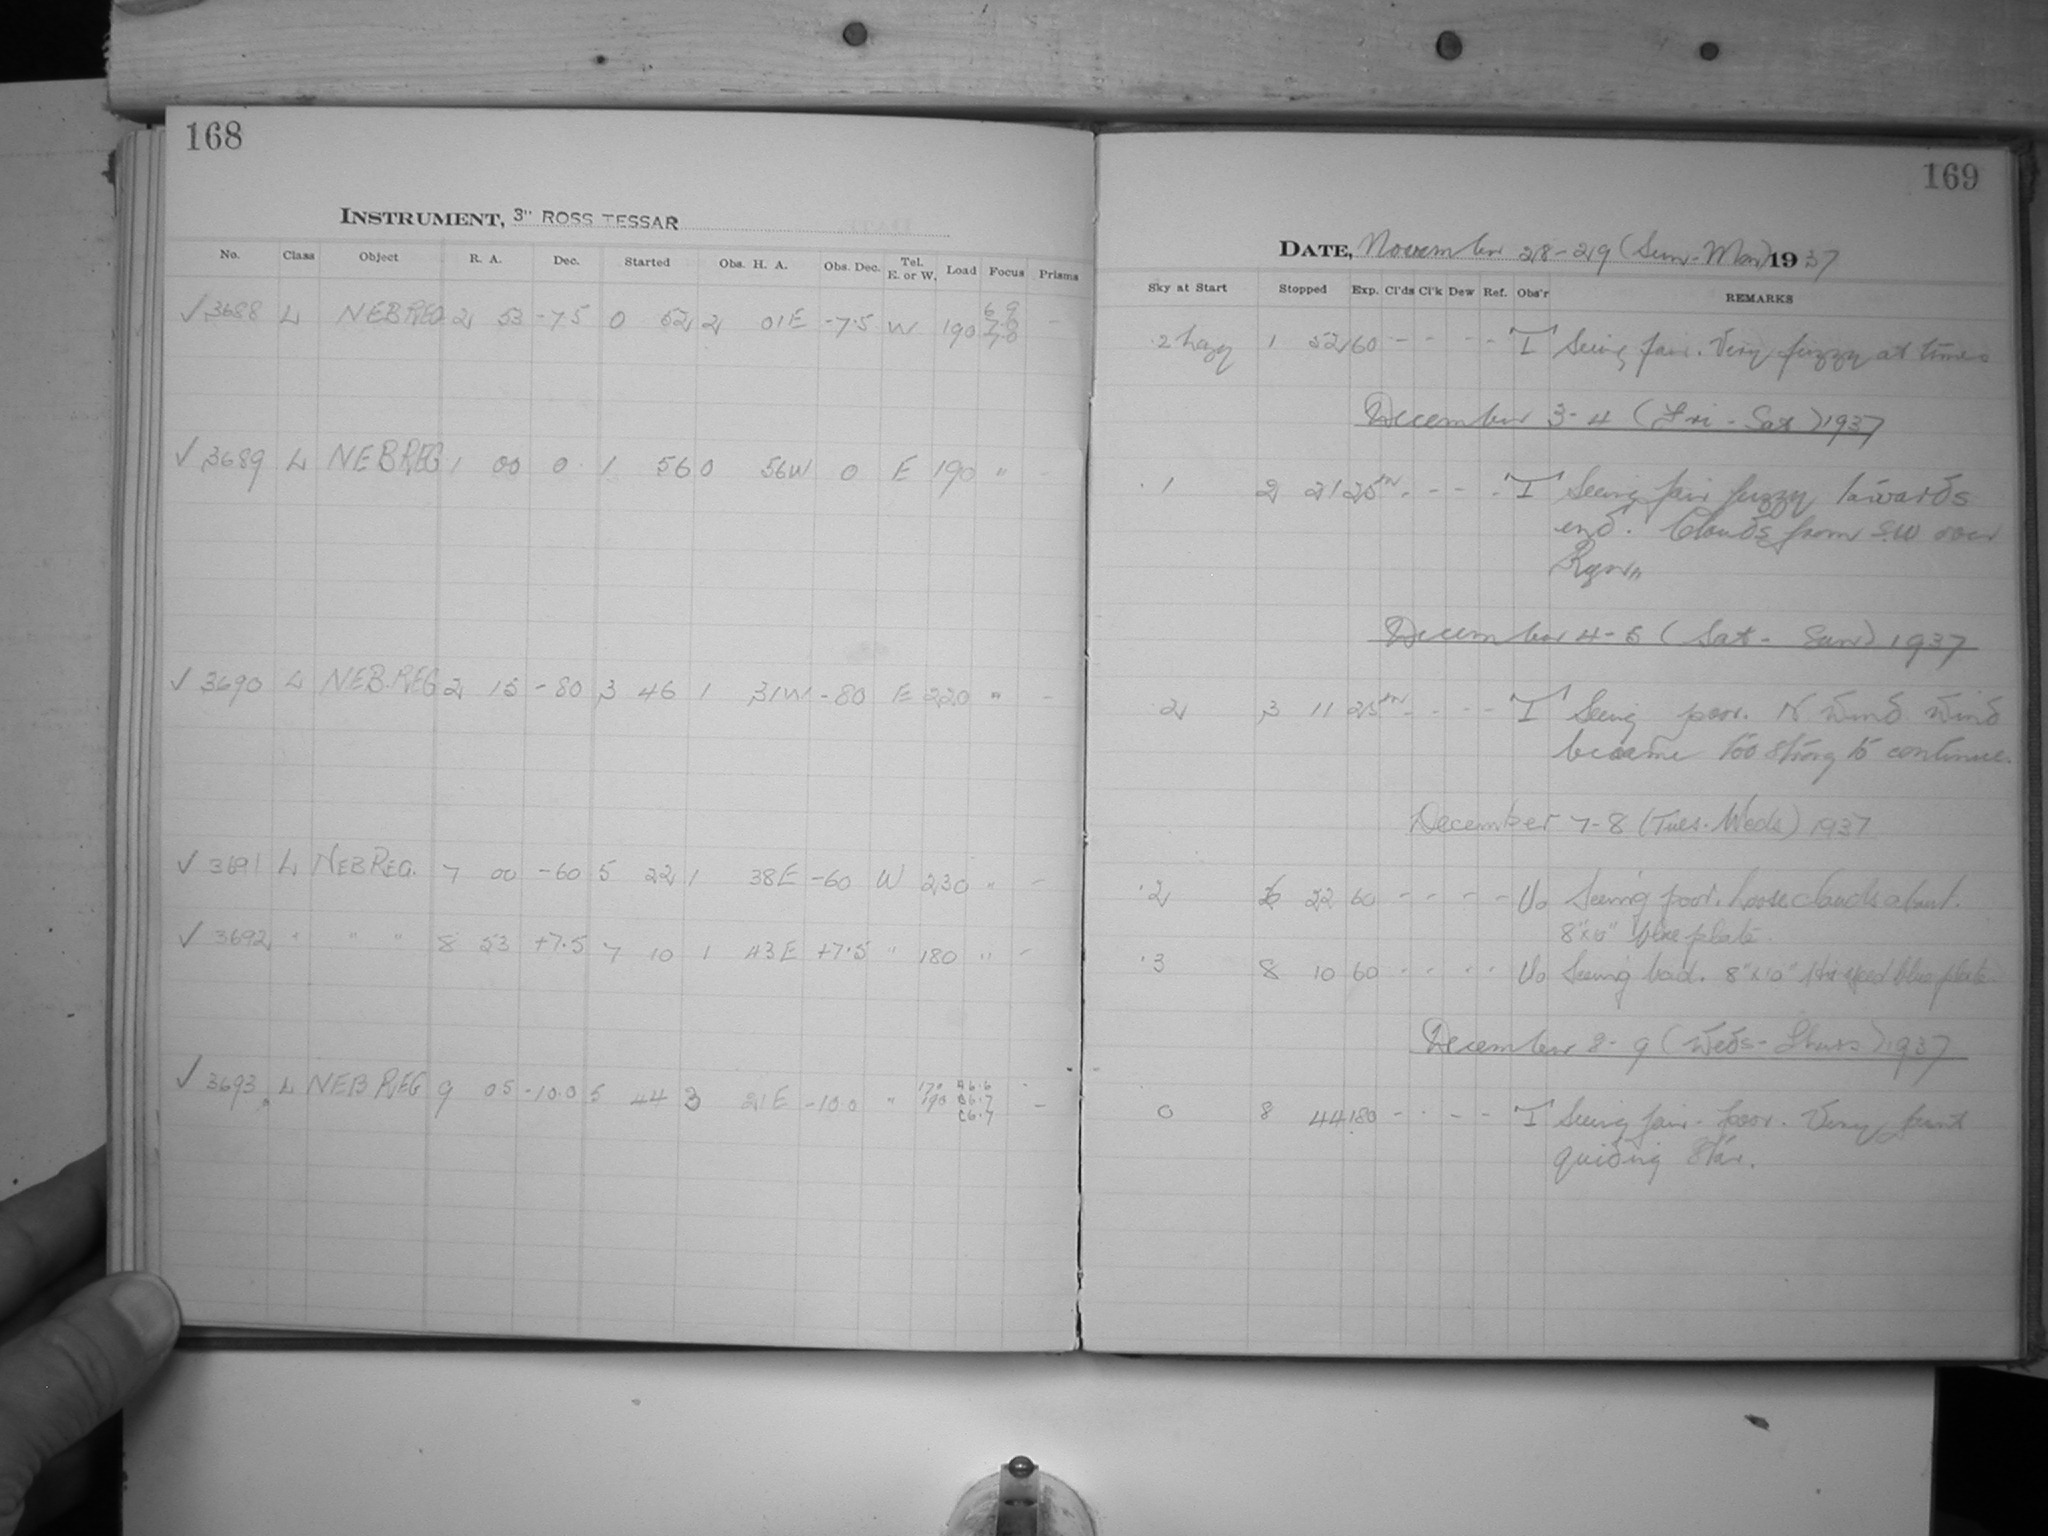 168
INSTRUMENT, 3" ROSS TESSAR
No. Class Object R. A. Dec. Started Obs. H. A. Obs. Dec. Tel. E. or W. Load Focus Prisms
✓ 3688 L NEB REG 2 53 -7.5 0 52 2 01E -7.5 W 190 6.9 7.0 7.0 -
✓ 3689 L NEB REG 1 00 0 1 56 0 56W 0 E 190 " -
✓ 3690 L NEB.REG 2 15 -80 3 46 1 31W -80 E 220 " -
✓ 3691 L NEB REG. 7 00 -60 5 22 1 38E -60 W 230 " -
✓ 3692 " " " 8 53 +7.5 7 10 1 43E +7.5 " 180 " -
✓ 3693 L NEB REG 9 05 -10.0 5 44 3 21E -10.0 " 170 190 A6.6 B6.7 C6.7 -
169
DATE, November 28-29 (Sun-Mon) 1937
Sky at Start Stopped Exp. Cl'ds Cl'k Dew Ref. Obs'r REMARKS
.2 hazy 1 52 60 - - - - T Seeing fair. Very fuzzy at times
December 3-4 (Fri - Sat) 1937
.1 2 21 25m - - - - T Seeing fair fuzzy towards
end. Clouds from S.W over
Rgn
December 4-5 (Sat - Sun) 1937
.2 3 11 25m - - - - T Seeing poor. N Wind Wind
became too strong to continue.
December 7-8 (Tues-Weds) 1937
.2 6 22 60 - - - - Vo Seeing poor. Loose clouds about.
8"x10" blue plate.
.3 8 10 60 - - - - Vo Seeing bad. 8"x10" Hi speed blue plate.
December 8-9 (Weds-Thurs) 1937
0 8 44 180 - - - - T Seeing fair - poor. Very faint
guiding star.